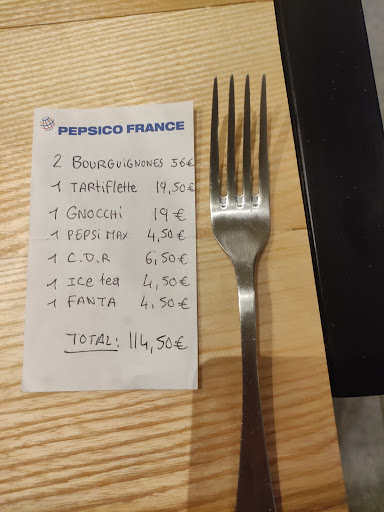 PEPSICO FRANCE
2 BOURGUIGNONES 56€
1 TARTiFLETTE 19,50€
1 GNOCCHi 19 €
1 PEPSi MAX 4,50€
1 C.D.R 6,50€
1 ICE tea 4,50€
1 FANTA 4,50€
TOTAL: 114,50€